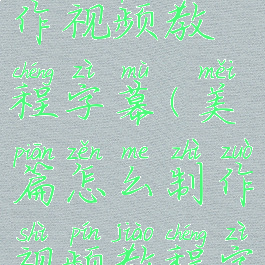 作视频教
chéng zì mù měi
程字幕(美
piān zěn me zhì zuò
篇怎么制作
shì pín jiào chéng zì
视频教程字